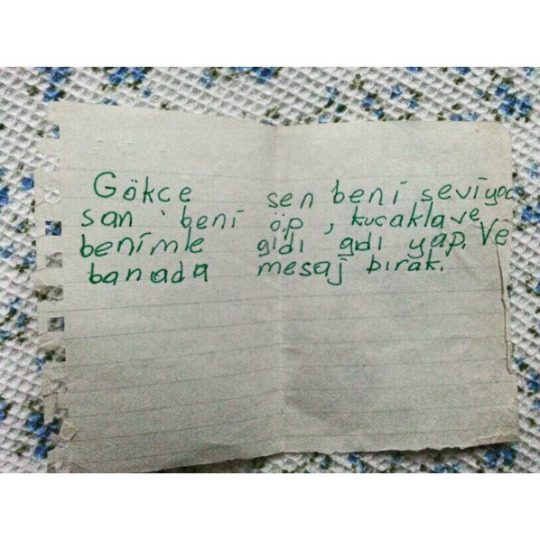 Gökce sen beni seviyor
san beni öp, kucakla ve
benimle gıdı gıdı yap. Ve
banada mesaj bırak.